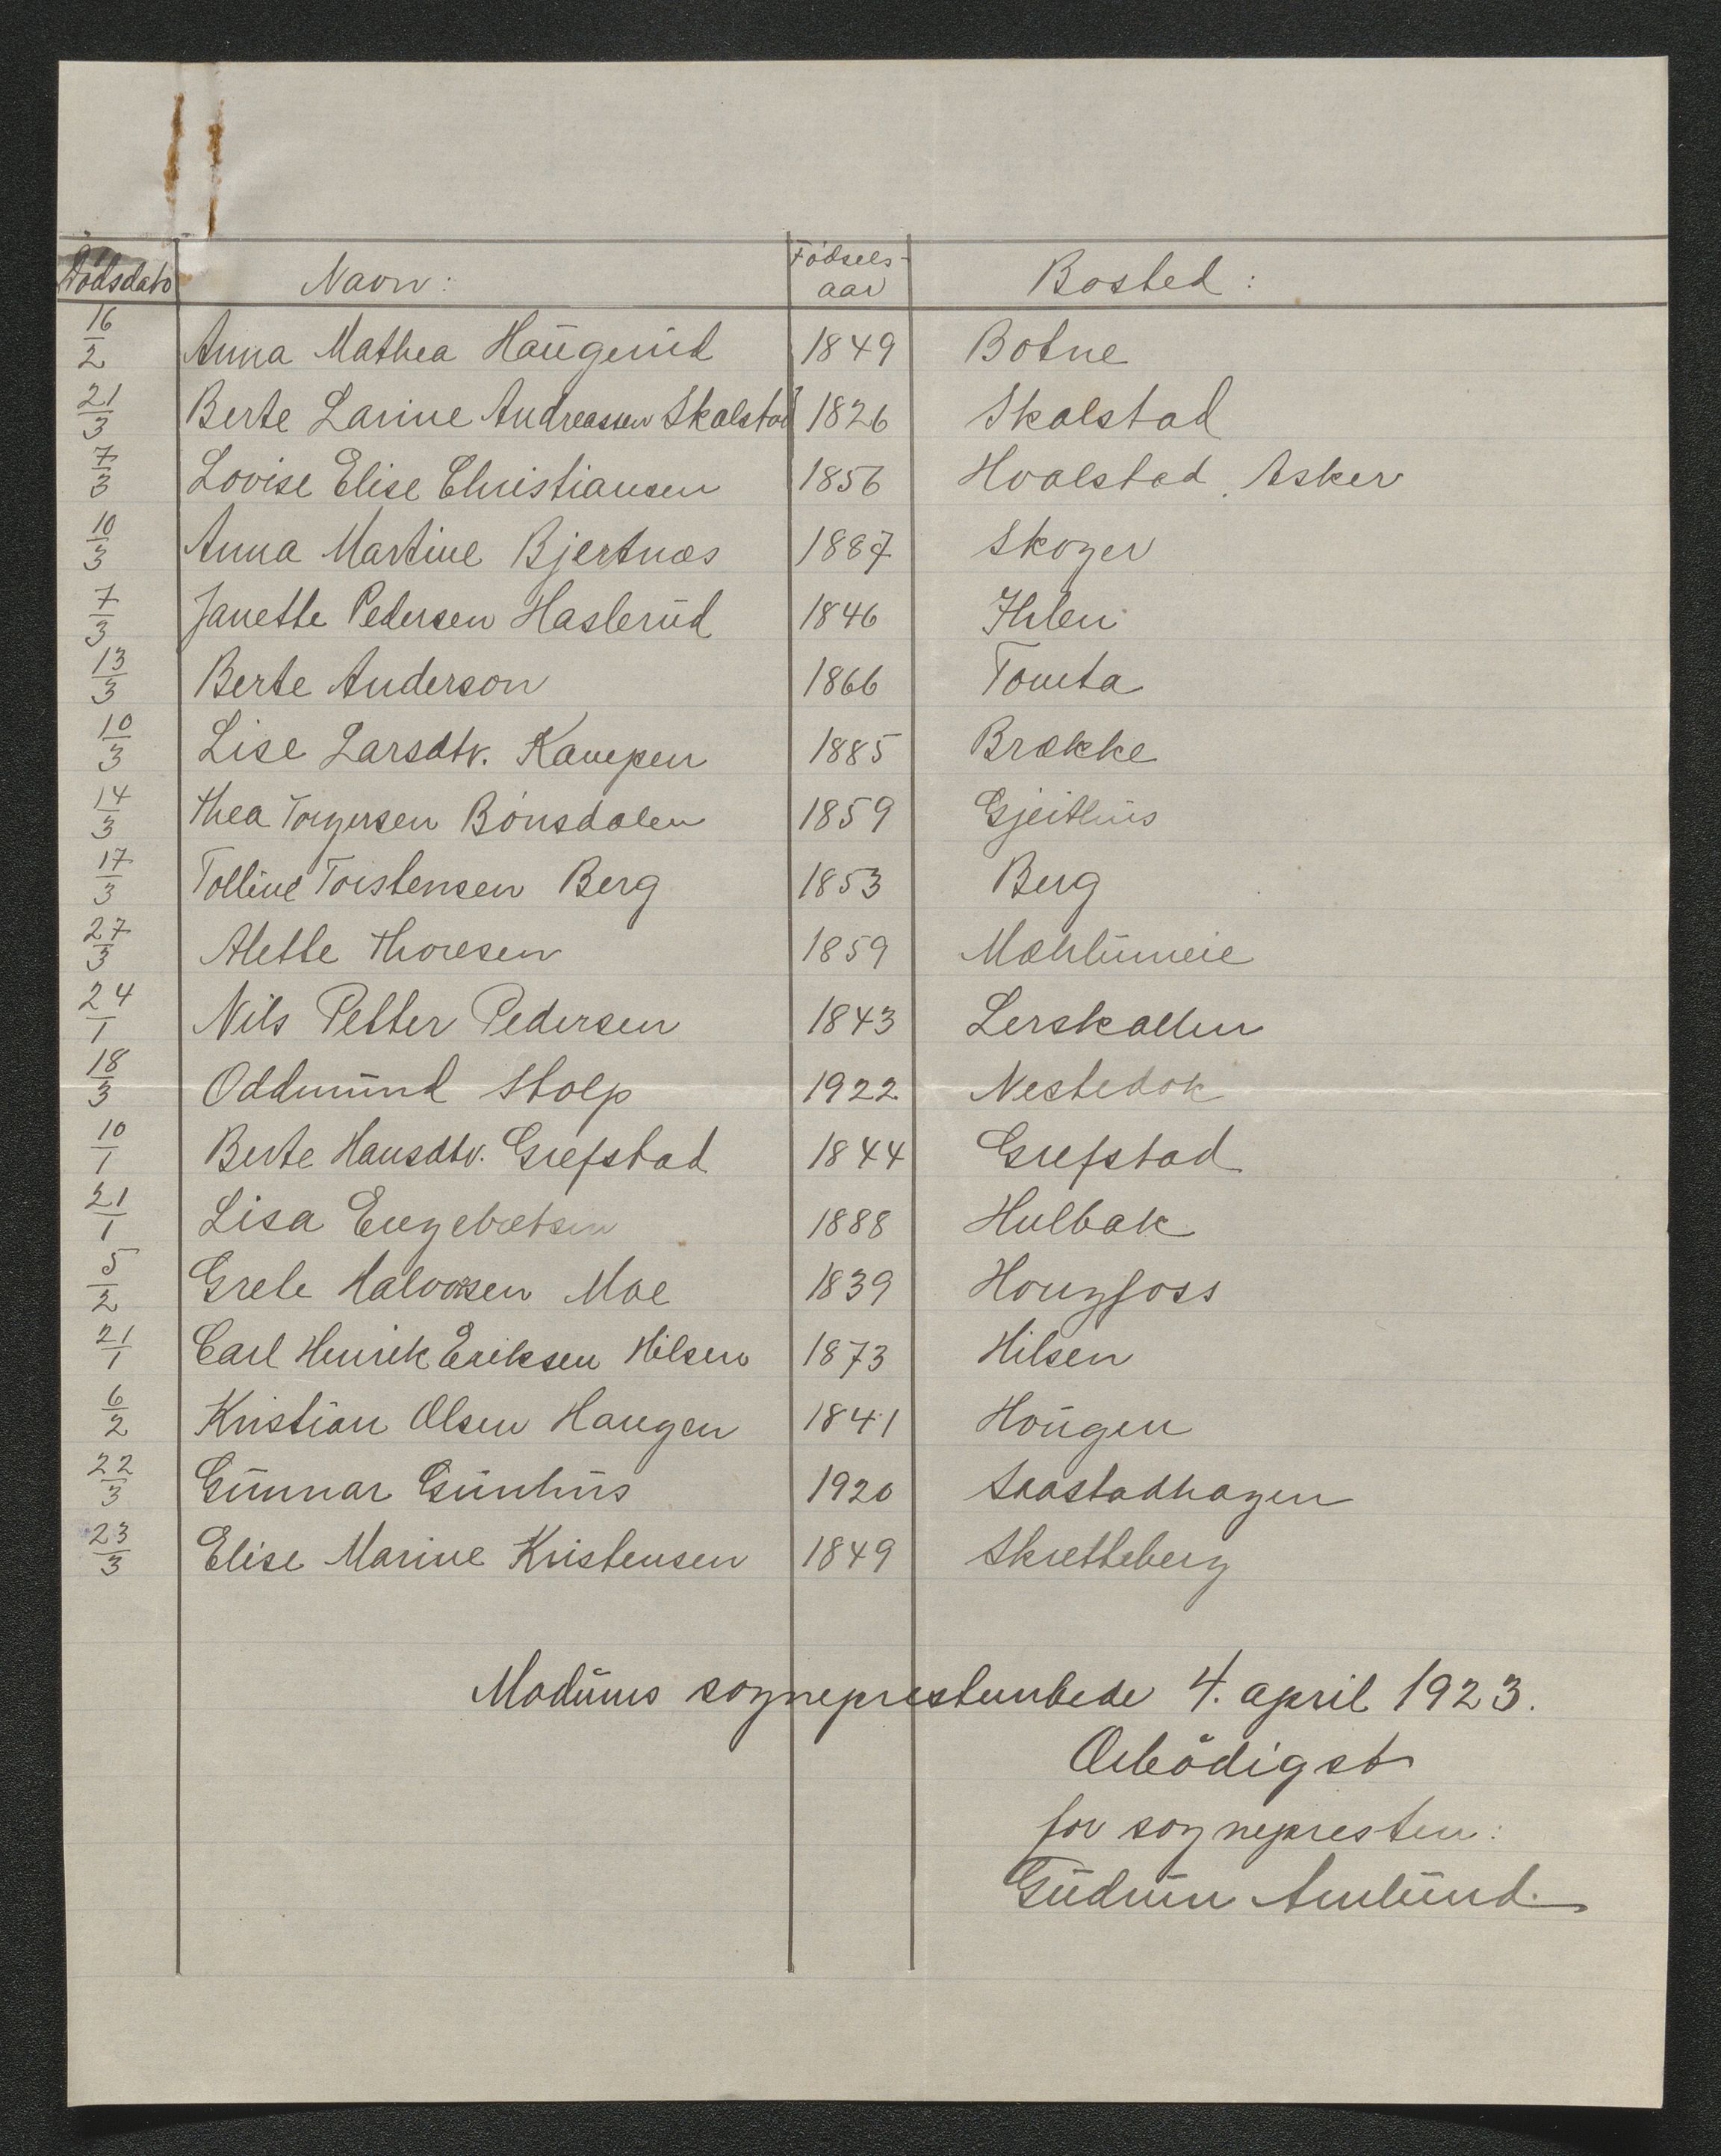 Dødsdato Navn: Fødsels-aar Bosted:
16/2 Anna Mathea Haugerud 1849 Botne
21/3 Berte Larine Andreassen Skalstad 1826 Skalstad
7/3 Lovise Elise Christiansen 1856 Hvalstad, Asker
10/3 Anna Martine Bjertnæs 1887 Skoger
7/3 Janette Pedersen Haslerud 1846 Ihlen
13/3 Berte Anderson 1866 Tomta
10/3 Lise Larsdtr. Kampen 1885 Brække
14/3 Thea Torgersen Bønsdalen 1859 Gjeithus
17/3 Tolline Torstensen Berg 1853 Berg
27/3 Alette Thoresen 1859 Mæhlumeie
24/1 Nils Petter Pedersen 1843 Lerskallen
18/3 Oddmund Stolp 1922 Nestedok
10/1 Berte Hansdtr. Grefstad 1844 Grefstad
21/1 Lisa Engebretsen 1888 Hulbak
5/2 Grete Halvorsen Moe 1839 Hougfoss
21/1 Carl Henrik Eriksen Hilsen 1873 Hilsen
6/2 Kristian Olsen Haugen 1841 Hougen
22/3 Gunnar Gunhus 1920 Saastadhagen
23/3 Elise Marine Kristensen 1849 Skretteberg
Modums sogneprestembede 4. april 1923.
Ærbødigst
for sognepresten:
Gudrun Amlund.